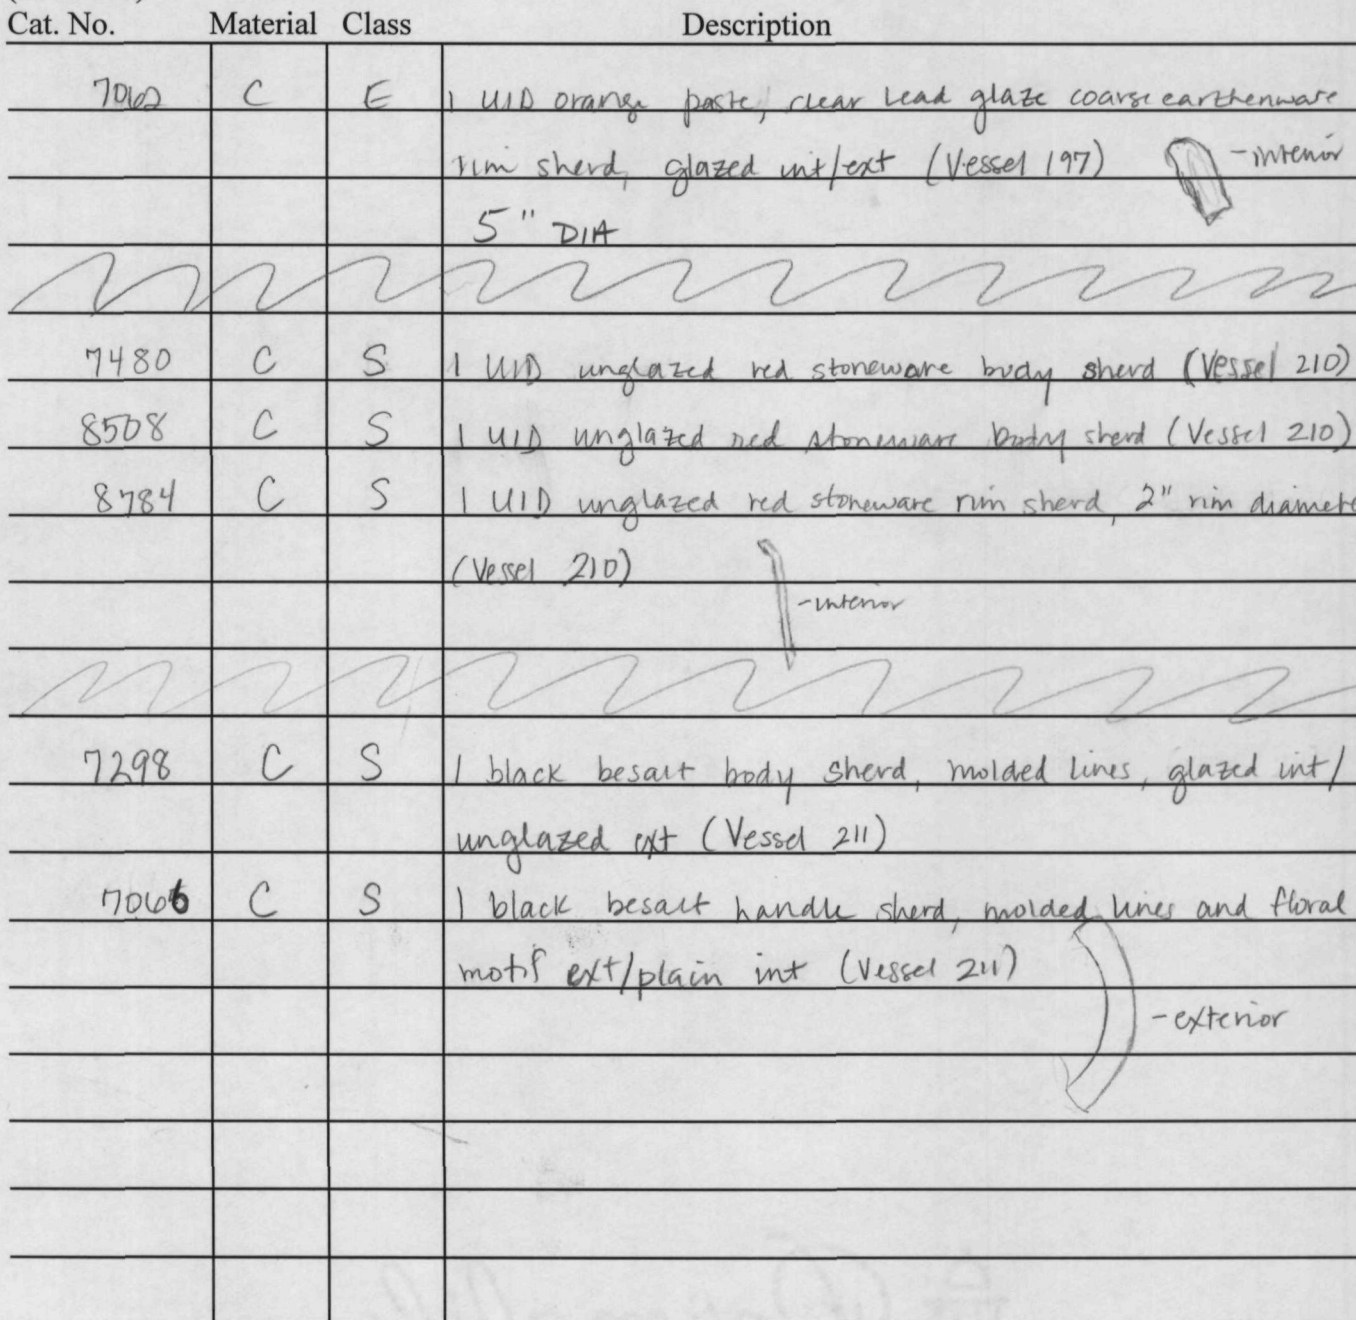 Cat. No. Material Class Description
7062 C E 1 UID orange paste, clear lead glaze coarse earthenware
rim sherd, glazed int/ext (Vessel 197) -interior
5" DIA
7480 C S 1 UID unglazed red stoneware body sherd (Vessel 210)
8508 C S 1 UID unglazed red stoneware body sherd (Vessel 210)
8784 C S 1 UID unglazed red stoneware rim sherd, 2" rim diamete
(Vessel 210)
-interior
7298 C S 1 black besalt body sherd, molded lines, glazed int/
unglazed ext (Vessel 211)
7066 C S 1 black besalt handle sherd, molded lines and floral
motif ext/plain int (Vessel 211)
-exterior